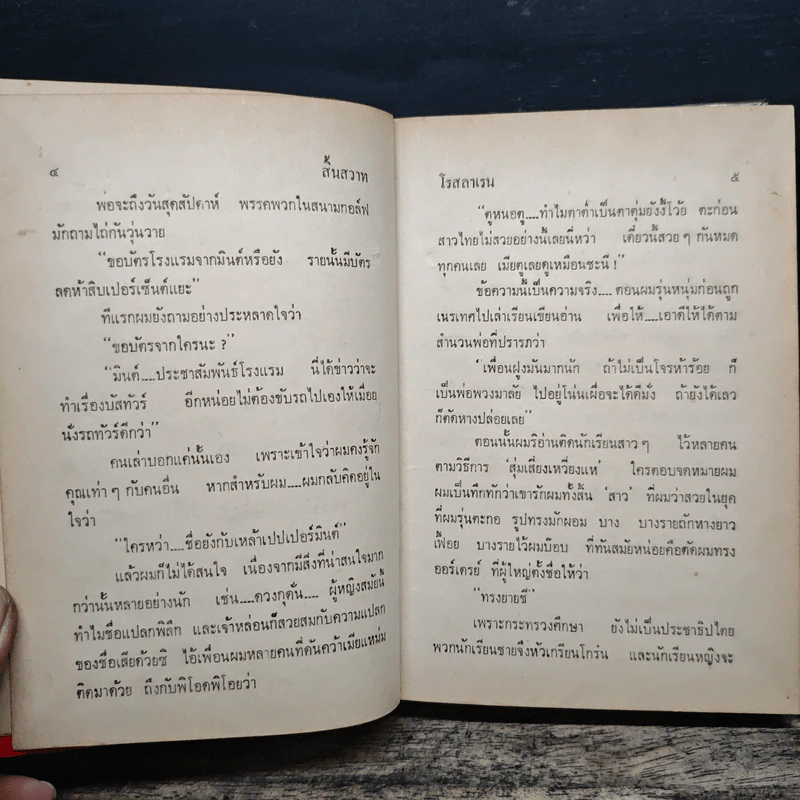 ๔ สิ้นสวาท
พอจะถึงวันสุดสัปดาห์ พรรคพวกในสนามกอล์ฟ
มักถามไถ่กันวุ่นวาย
“ขอบัตรโรงแรมจากมินต์หรือยัง รายนั้นมีบัตร
ลดห้าสิบเปอร์เซ็นต์แยะ”
ทีแรกผมยังถามอย่างประหลาดใจว่า
“ขอบัตรจากใครนะ ?”
“มินต์....ประชาสัมพันธ์โรงแรม นี่ได้ข่าวว่าจะ
ทำเรื่องบัสทัวร์ อีกหน่อยไม่ต้องขับรถไปเองให้เมื่อย
นั่งรถทัวร์ดีกว่า”
คนเล่าบอกแค่นั้นเอง เพราะเข้าใจว่าผมคงรู้จัก
คุณเท่า ๆ กับคนอื่น หากสำหรับผม....ผมกลับคิดอยู่ใน
ใจว่า
“ใครหว่า....ชื่อยังกับเหล้าเปปเปอร์มินต์”
แล้วผมก็ไม่ได้สนใจ เนื่องจากมีสิ่งที่น่าสนใจมาก
กว่านั้นหลายอย่างนัก เช่น....ดวงกุดั่น.... ผู้หญิงสมัยนี้
ทำไมชื่อแปลกพิลึก และเจ้าหล่อนก็สวยสมกับความแปลก
ของชื่อเสียด้วยซิ ไอ้เพื่อนผมหลายคนที่ดันคว้าเมียแหม่ม
ติดมาด้วย ถึงกับพิโอดพิโอยว่า
โรสลาเรน ๕
“ดูหนอดู....ทำไมตาดำเป็นตาตุ่มยังงี้โว้ย ตะก่อน
สาวไทยไม่สวยอย่างนี้เลยนี่หว่า เดี๋ยวนี้สวย ๆ กันหมด
ทุกคนเลย เมียดูเลยดูเหมือนชะนี !”
ข้อความนี้เป็นความจริง.... ตอนผมรุ่นหนุ่มก่อนถูก
เนรเทศไปเล่าเรียนเขียนอ่าน เพื่อให้....เอาดีให้ได้ตาม
สำนวนพ่อที่ปรารภว่า
‘เพื่อนฝูงมันมากนัก ถ้าไม่เป็นโจรห้าร้อย ก็
เป็นพ่อพวงมาลัย ไปอยู่โน่นเผื่อจะได้ดีมั่ง ถ้ายังได้เลว
ก็ตัดหางปล่อยเลย”
ตอนนั้นผมริอ่านติดนักเรียนสาว ๆ ไว้หลายคน
ตามวิธีการ ‘สุ่มเสี่ยงเหวี่ยงแห’ ใครตอบจดหมายผม
ผมเป็นทึกทักว่าเขารักผมทั้งสิ้น ‘สาว’ ที่ผมว่าสวยในยุค
ที่ผมรุ่นตะกอ รูปทรงมักผอม บาง บางรายถักหางยาว
เฟื้อย บางรายไว้ผมบ๊อบ ที่ทันสมัยหน่อยคือตัดผมทรง
ออร์เดรย์ ที่ผู้ใหญ่ตั้งชื่อให้ว่า
“ทรงยายชี”
เพราะกระทรวงศึกษา ยังไม่เป็นประชาธิปไตย
พวกนักเรียนชายจึงหัวเกรียนโกร๋น และนักเรียนหญิงจะ